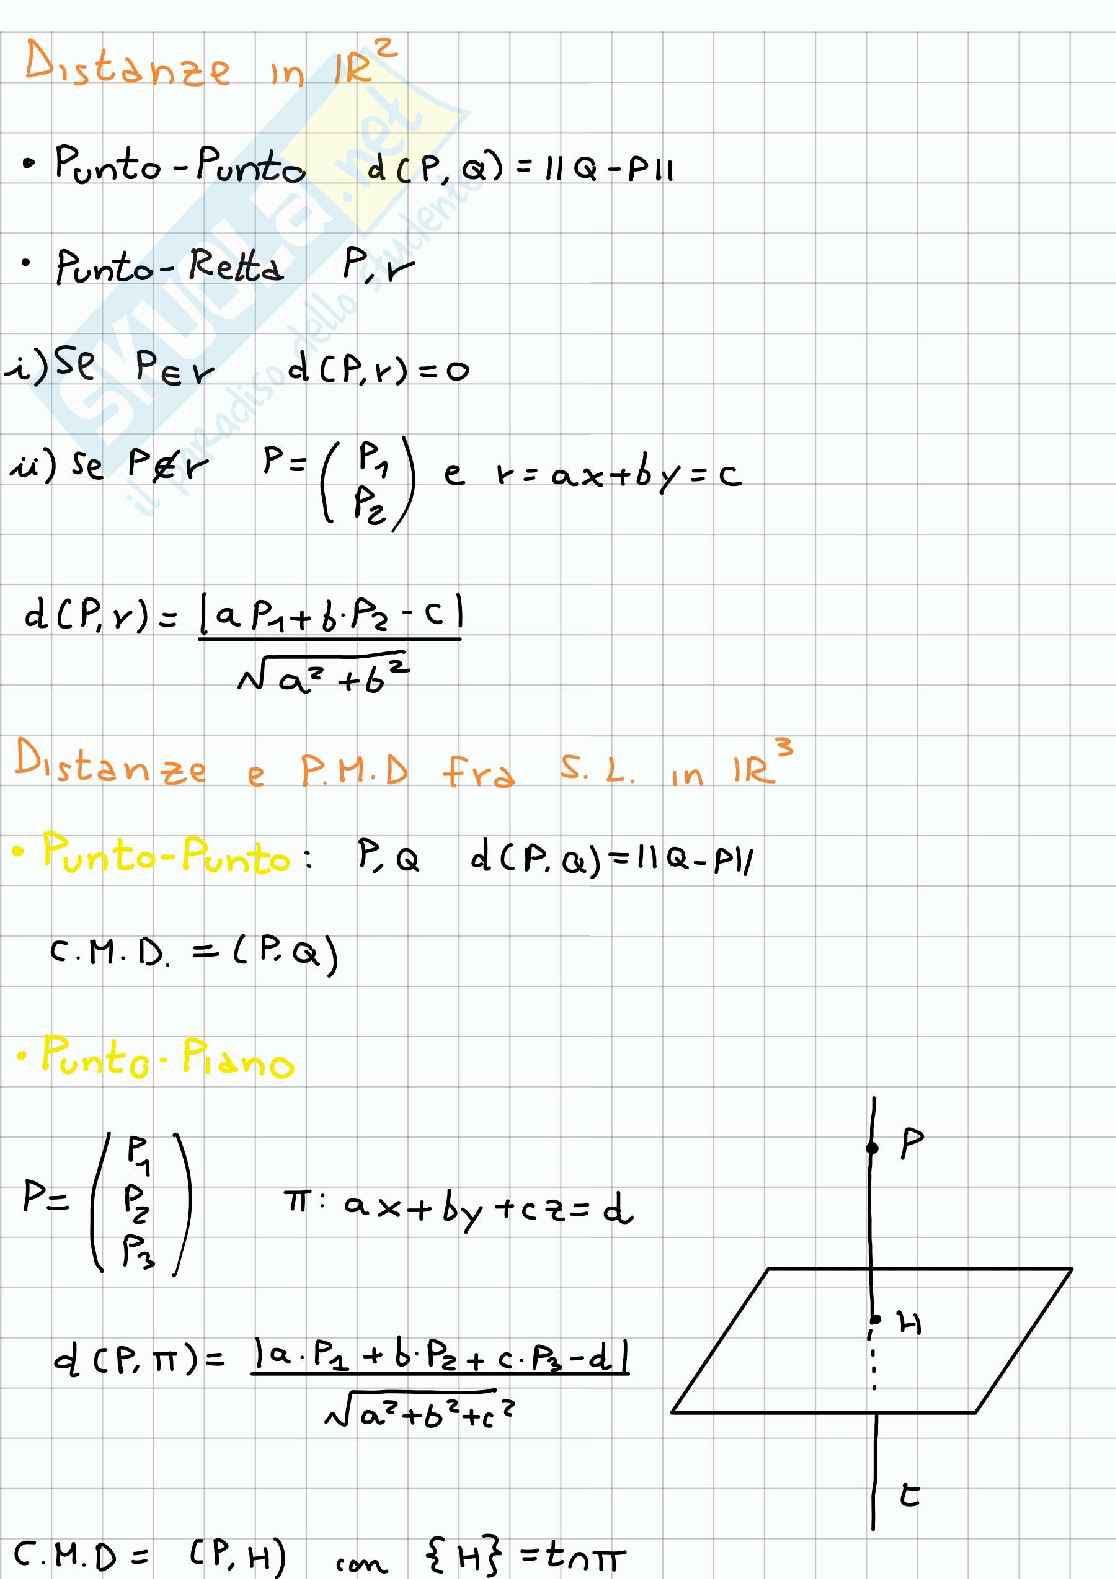 Distanze in ℝ²
• Punto-Punto d(P,Q)=||Q-P||
• Punto-Retta P,r
i) Se P∈r d(P,r)=0
ii) Se P∉r P=(P₁ P₂) e r=ax+by=c
d(P,r)=|aP₁+b·P₂-c|
√a²+b²
Distanze e P.M.D fra S.L. in ℝ³
• Punto-Punto: P,Q d(P,Q)=||Q-P||
C.M.D. =(P,Q)
• Punto-Piano
P=(P₁ P₂ P₃) π: ax+by+cz=d
P
H
d(P,π)=|a·P₁+b·P₂+c·P₃-d|
√a²+b²+c²
t
C.M.D= (P,H) con {H}=t∩π
SKUOLA.net
il paradiso dello studente